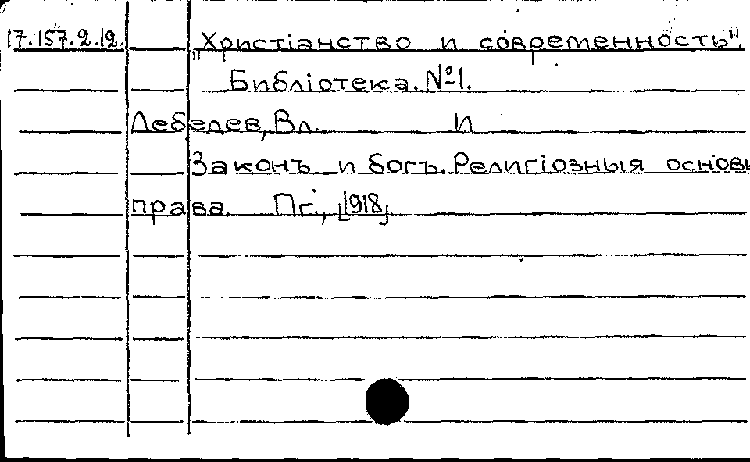 17.157.2.12. „Христіанство и современность".
Библіотека. №1.
Лебедев, Вл. И
Законъ и богъ. Религіозныя основы
права. Пг., [1918]